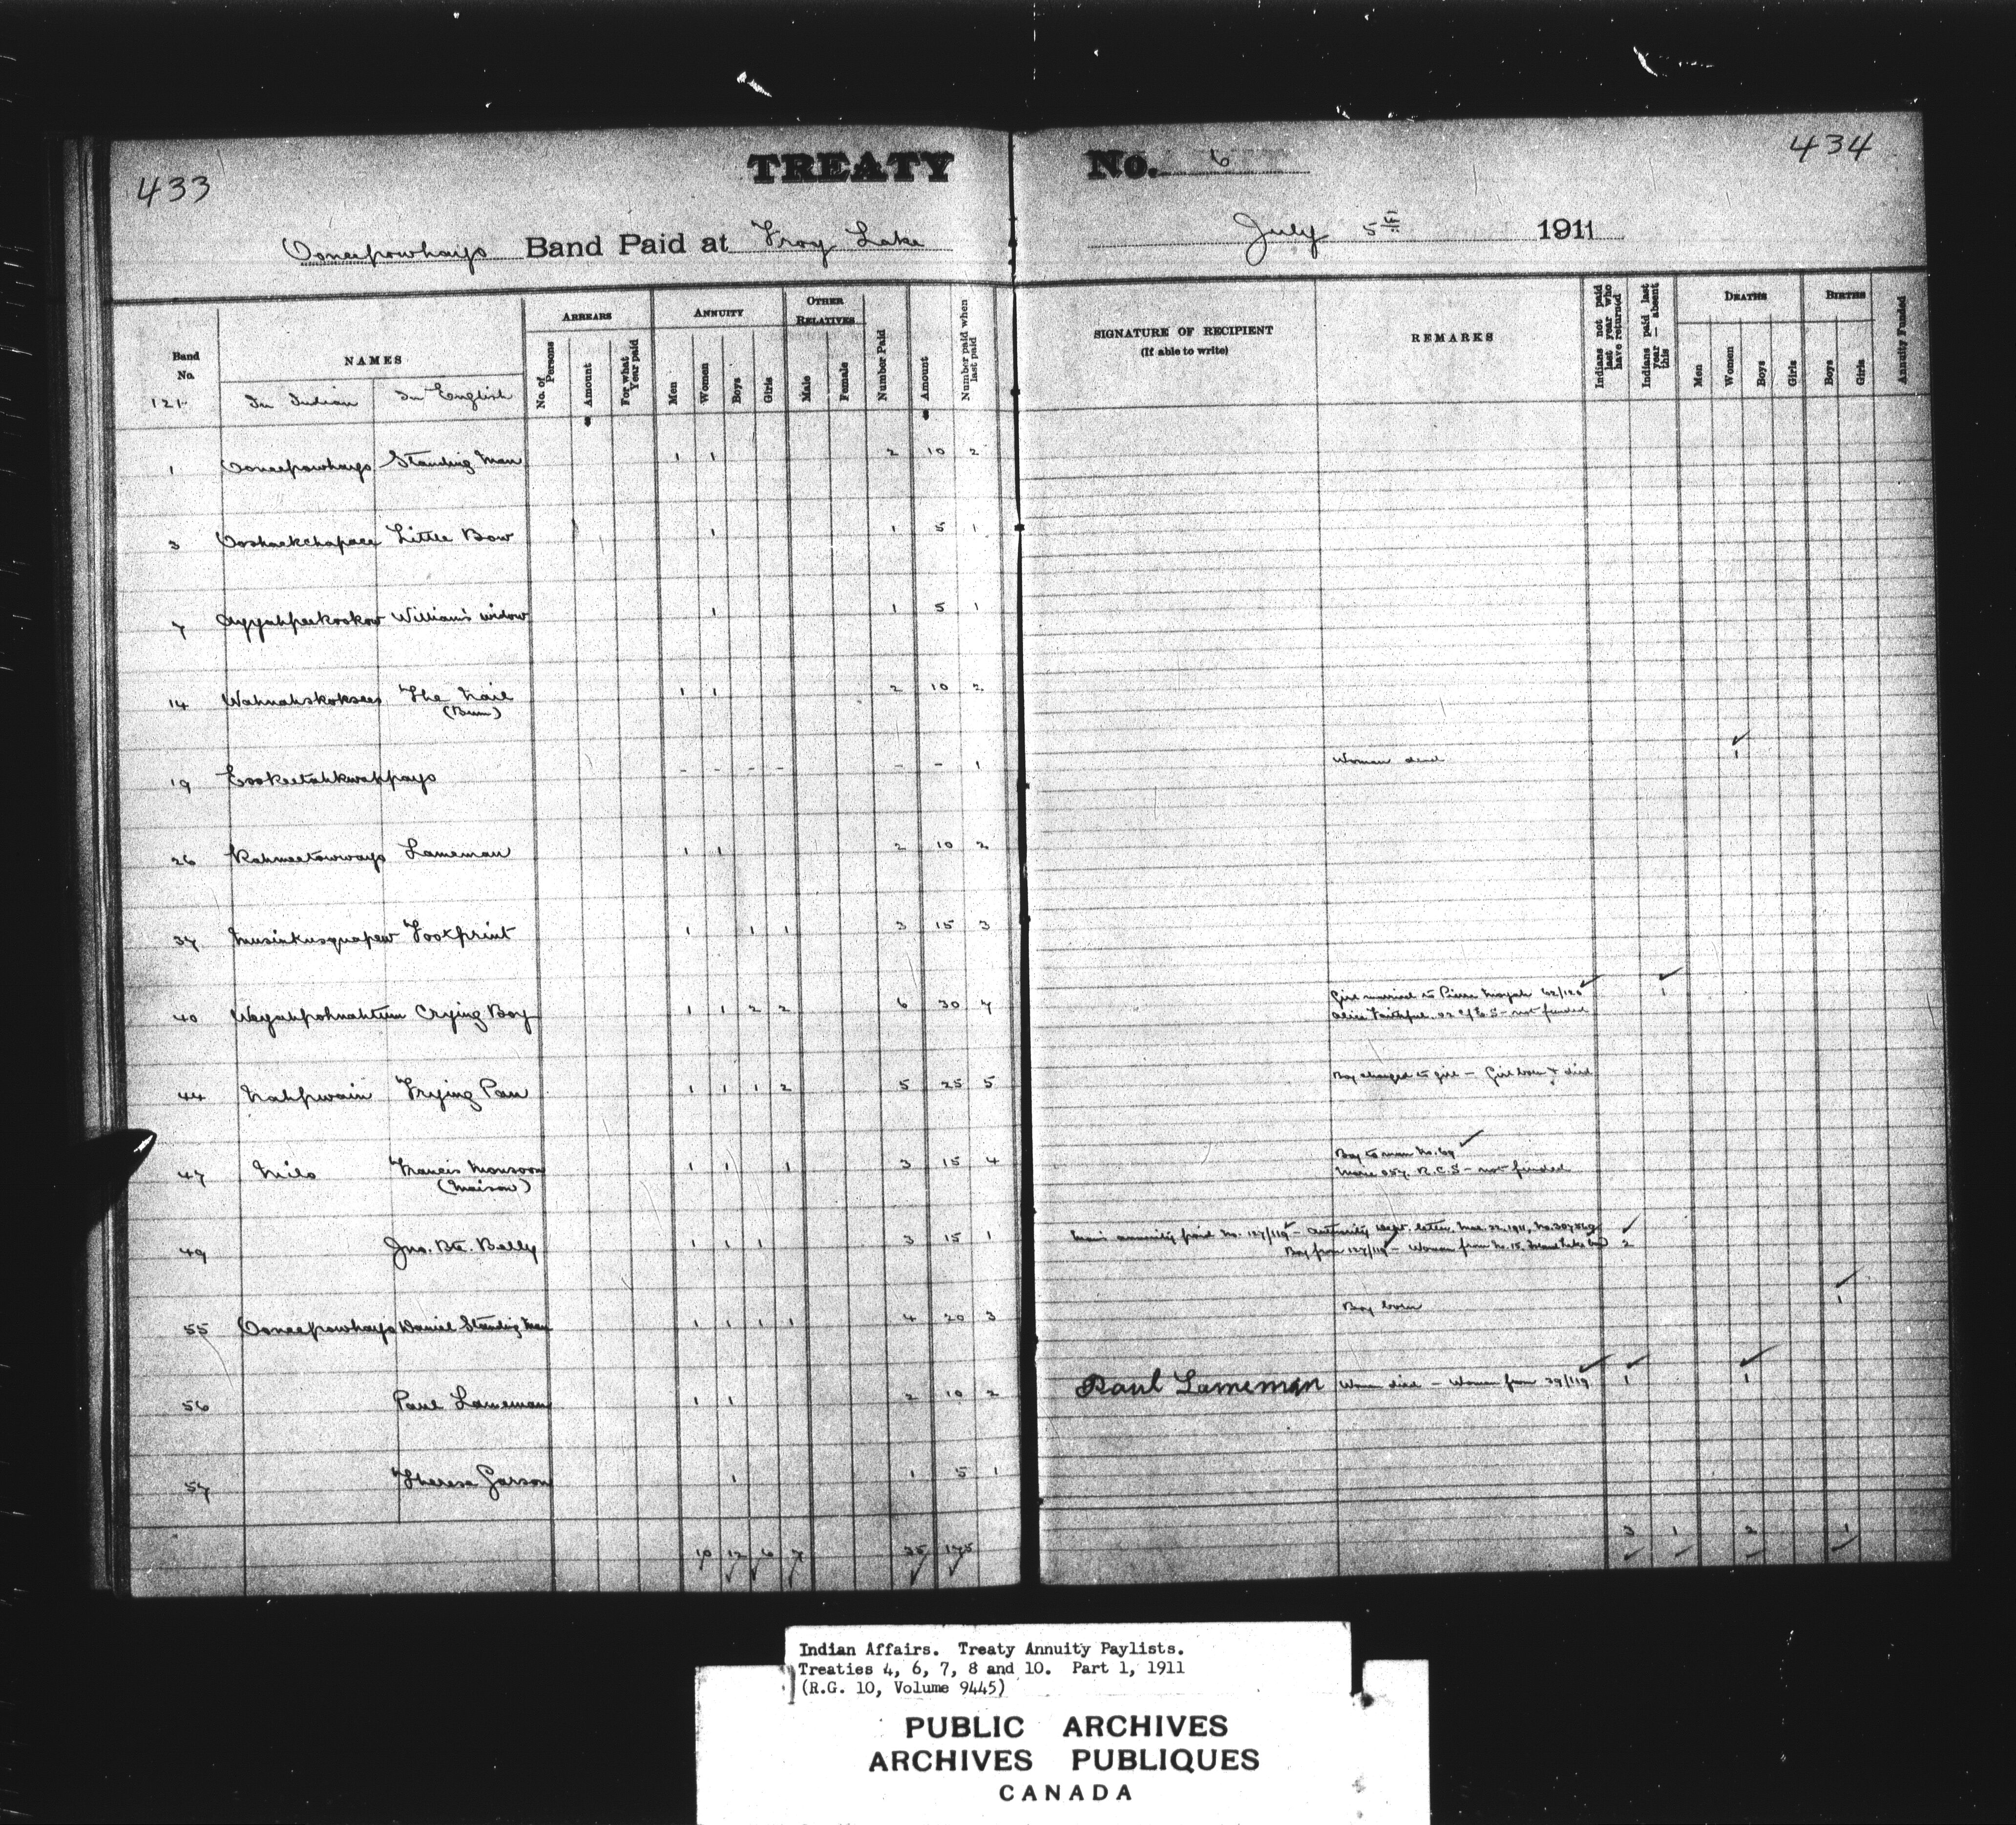 433
TREATY No. 6
434
Oneepowhayo Band Paid at Frog Lake July 5th 1911
Band No.
NAMES
ARREARS
No. of Persons
Amount
For what Year paid
ANNUITY
Men
Women
Boys
Girls
OTHER RELATIVES
Male
Female
Number Paid
Amount
Number paid when last paid
SIGNATURE OF RECIPIENT
(If able to write)
REMARKS
Indians not paid last year who have returned
Indians paid last year — absent this
DEATHS
Men
Women
Boys
Girls
BIRTHS
Boys
Girls
Annuity Funded
121 In Indian In English
1 Oneepowhayo Standing Man 1 1 2 10 2
3 Little Bow 1 1 5 1
7 Ayyahpeekookow William's widow 1 1 5 1
14 Wahnahskoksees The Nail 1 1 2 10 2
19 - - - - - - 1 Woman died 1
26 Kahmeetowways Lameman 1 1 2 10 2
37 Musinkusquapew Footprint 1 1 1 3 15 3
40 Wayahpohnahtum Crying Boy 1 1 2 2 6 30 7 Girl married to Pierre 62/120 1
Alice Faithful - not funded
44 Nahpwain Frying Pan 1 1 1 2 5 25 5 Boy changed to girl - Girl born & died
47 Milo Francis Monsoon 1 1 1 3 15 4 Boy to man No. 69
(Maison) Marie 057 R.C.S - not funded
49 Jno. Bte. Belly 1 1 1 3 15 1 Man's annuity paid No. 127/119 - Authority Dept. letter Mar. 22. 1911, No.
Boy from 127/119 - Woman from No. 15, 2
55 Oneepowhayo Daniel Standing Man 1 1 1 1 4 20 3 Boy born 1
56 Paul Lameman 1 1 2 10 2 Paul Lameman Woman died - Woman from 39/119 1 1
57 Therese Garson 1 1 5 1
10 12 6 7 35 175 3 1 2 1
Indian Affairs. Treaty Annuity Paylists.
Treaties 4, 6, 7, 8 and 10. Part 1, 1911
(R.G. 10, Volume 9445)
PUBLIC ARCHIVES
ARCHIVES PUBLIQUES
CANADA